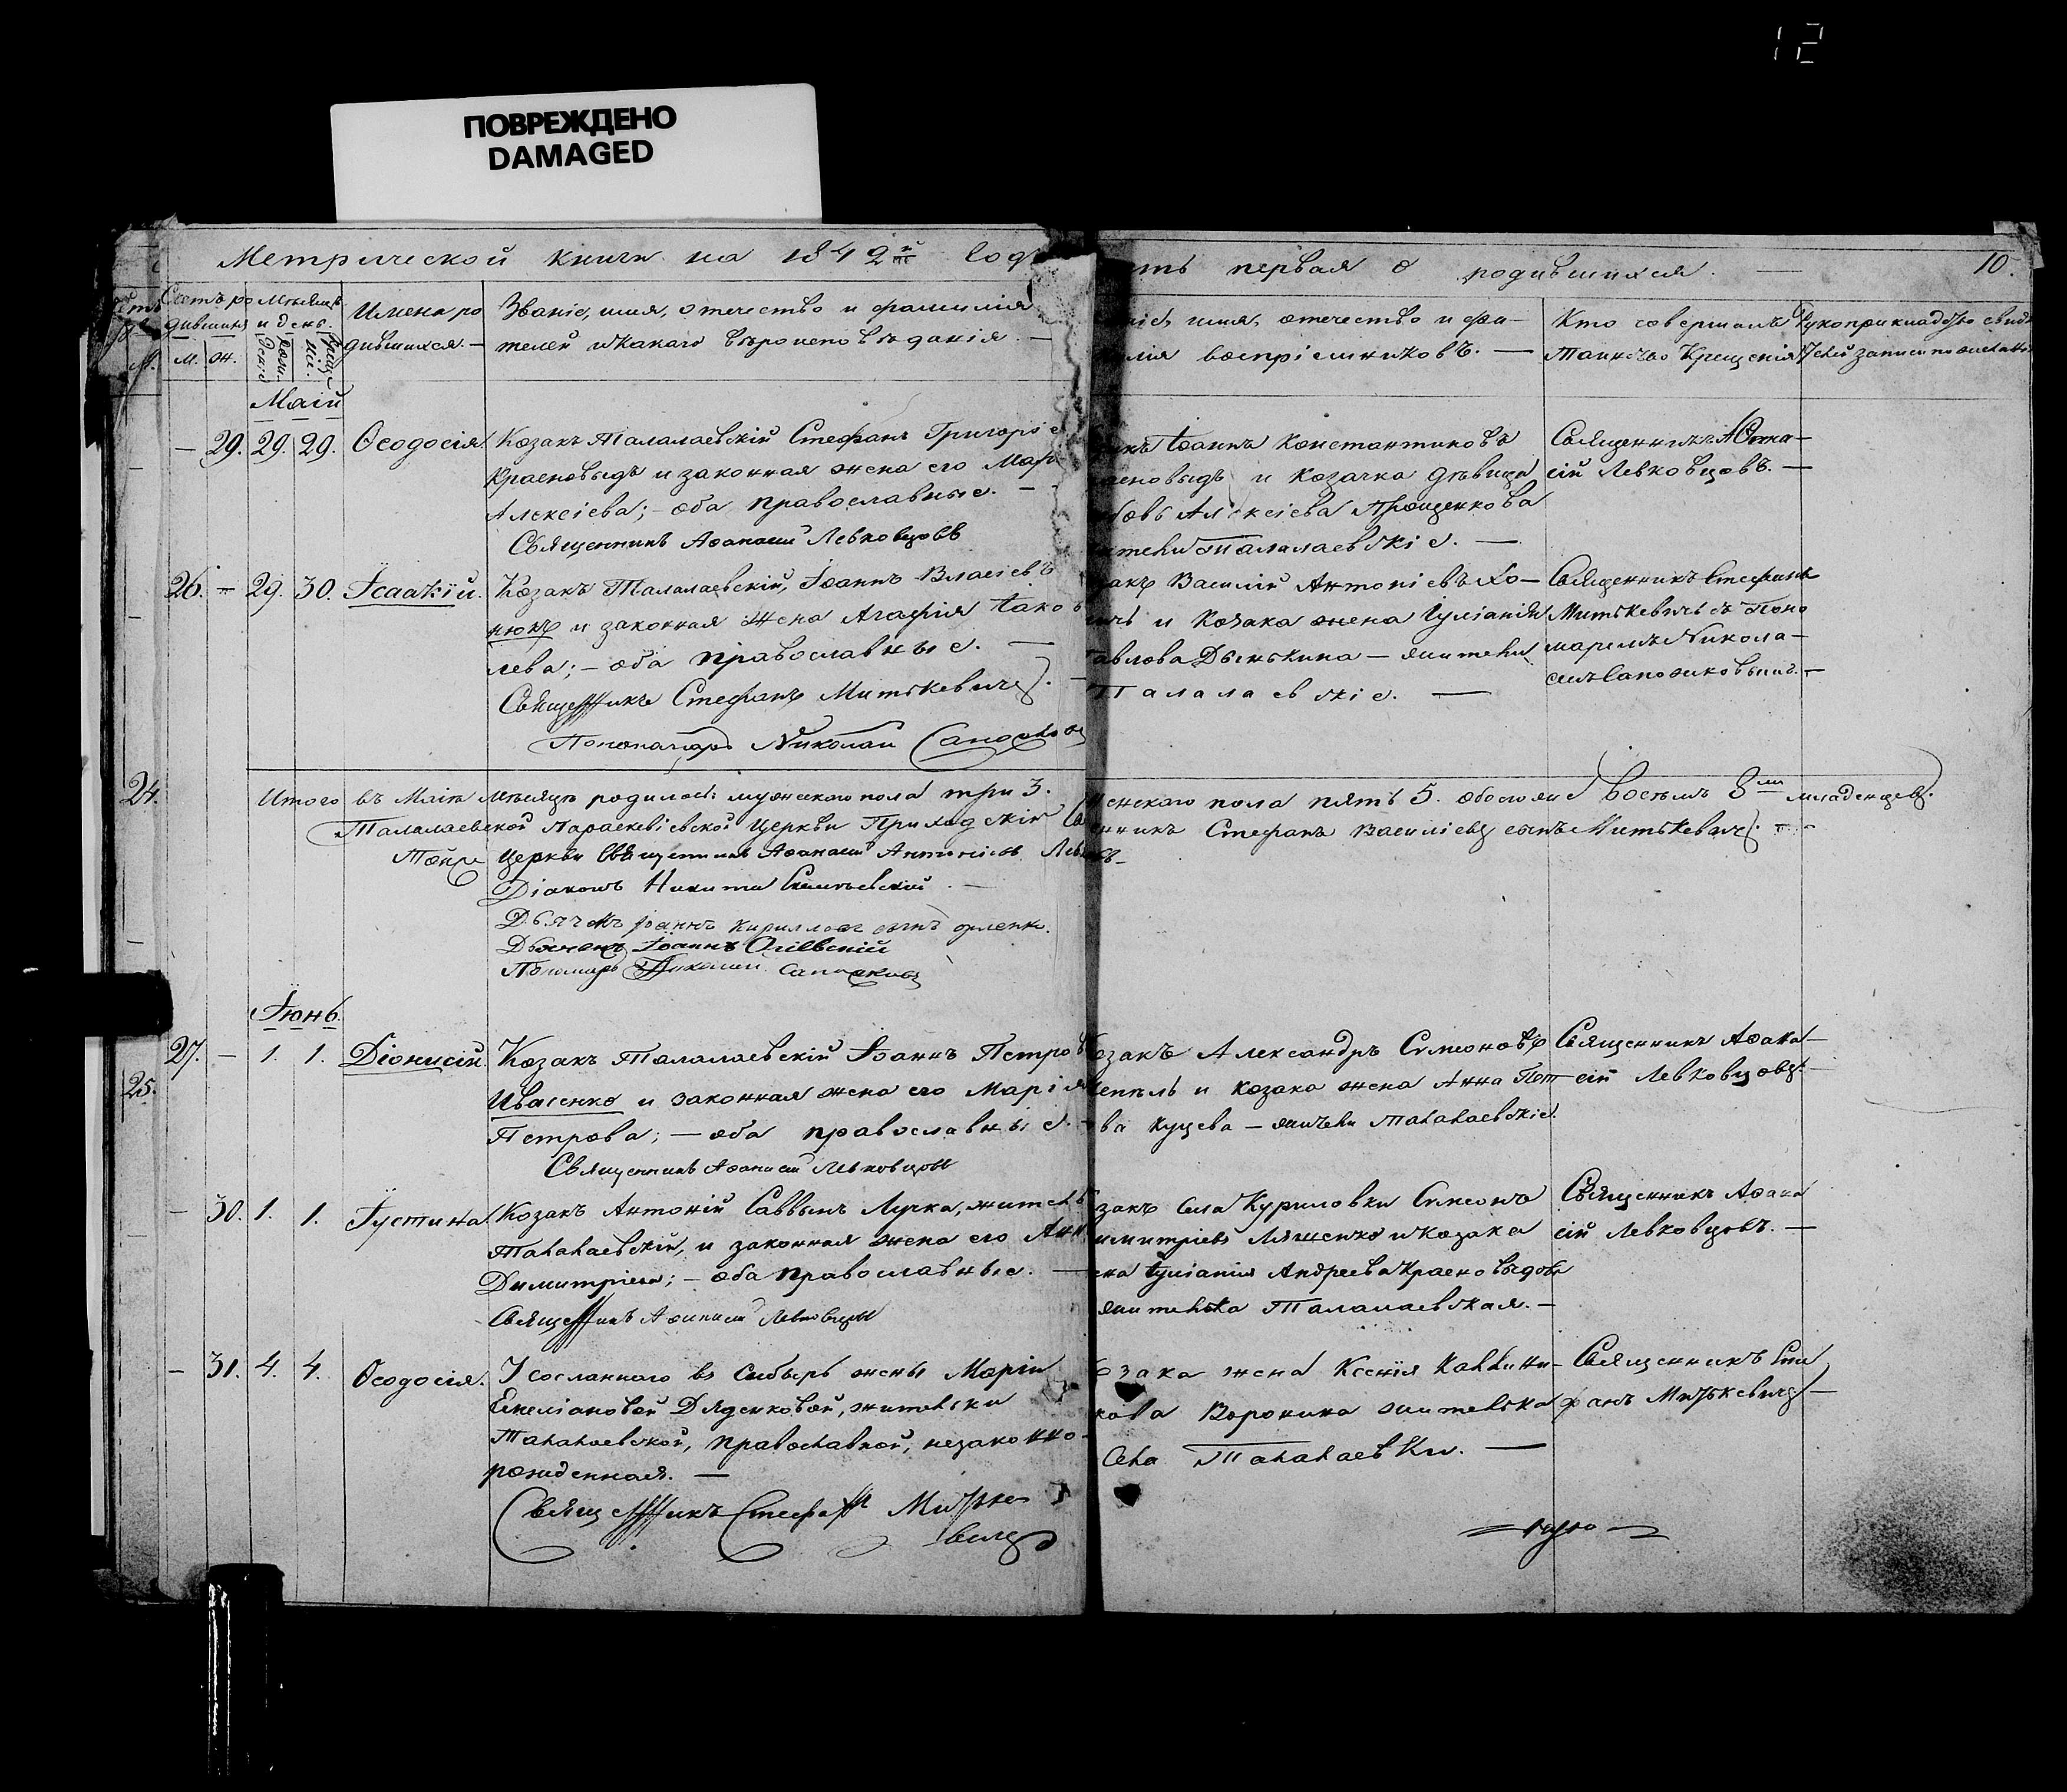 12
ПОВРЕЖДЕНО
DAMAGED
Метрической книги на 1842й году
сть первая о родившихся. — 10.
Счетъ ро
дившихся
м. ж.
Мѣсяцъ
и день.
Рож
денія
Креще
нія.
Имена ро
дившихся. —
Званіе, имя, отечество и фамилія
телей и какого вѣроисповѣданія. —
ніе, имя, отечество и фа—
илія воспріемниковъ. —
Кто совершалъ
таинство Крещенія
Рукоприкладство свидѣ
Маій
— 29. 29. 29. Ѳеодосія.
Козакъ Талалаевскій Стефанъ Григоріе
Красновыдъ и законная жена его Мар
Алексіева; — оба православные. —
Священникъ Аѳанасій Левковцовъ
Іоаннъ Константиновъ
сновыдъ и козачка дѣвица
бовь Алексіева Прощенкова
жители Талалаевскіе. —
Священникъ Аѳана—
сій Левковцовъ. —
26. — 29. 30. Ісаакій.
Козакъ Талалаевскій, Іоаннъ Власіевъ
нюкъ и законная жена Агафія Іаков
лева; — оба православные. —
Священникъ Стефанъ Митькевичъ. —
Пономарь Николай Сапожков
закъ Василій Антоніевъ Хо—
ичъ и козака жена Іуліанія
Павлова Дынькина — жители
Талалаевскіе. —
Священникъ Стефанъ
Митькевичъ съ Поно
маремъ Никола—
емъ Сапожковымъ. —
24.
Итого въ Маіѣ мѣсяцѣ родилось мужескаго пола три 3.
женскаго пола пять 5. обоего восемь 8ми младенцевъ.
Талалаевской Параскевіевской Церкви Приходскій Св
енникъ Стефанъ Василіевъ сынъ Митькевичъ.
Тойже церкви Священникъ Аѳанасій Антоніевъ Левк
въ—
Діаконъ Никита
Дьячекъ Іоаннъ Кирилловъ сынъ
Дьячекъ Іоаннъ
Пономарь Николай Сапожковъ
Іюнь.
27. — 1. 1. Діонисій.
Козакъ Талалаевскій Іоаннъ Петров
Иващенко и законная жена его Марія
Петрова; — оба православные. —
Священникъ Аѳанасій Левковцовъ
озакъ Александръ Симеоновъ
и козака жена Анна Пет
ва Куцева — жители Талалаевскіе.
Священникъ Аѳана—
сій Левковцовъ. —
25.
— 30. 1. 1. Іустина.
Козакъ Антоній Саввинъ Лучка, житель
Талалаевскій, и законная жена его Анн
Димитріева; — оба православные. —
Священникъ Аѳанасій Левковцовъ
закъ села Куриловки Симеонъ
имитріевъ Ляшенко и козака
ена Іуліанія Андреева Красновыдова
жителька Талалаевская. —
Священникъ Аѳана
сій Левковцовъ. —
— 31. 4. 4. Ѳеодосія.
У сосланнаго въ Сибирь жены Маріи
Емеліановой Дяденковой, жительки
Талалаевской, православной, незаконно—
рожденная. —
Священникъ Стефанъ Митьке
вичъ
озака жена Ксенія Каллини—
кова Воронина жителька
села Талалаевки. —
Священникъ Сте
фанъ Митькевичъ —